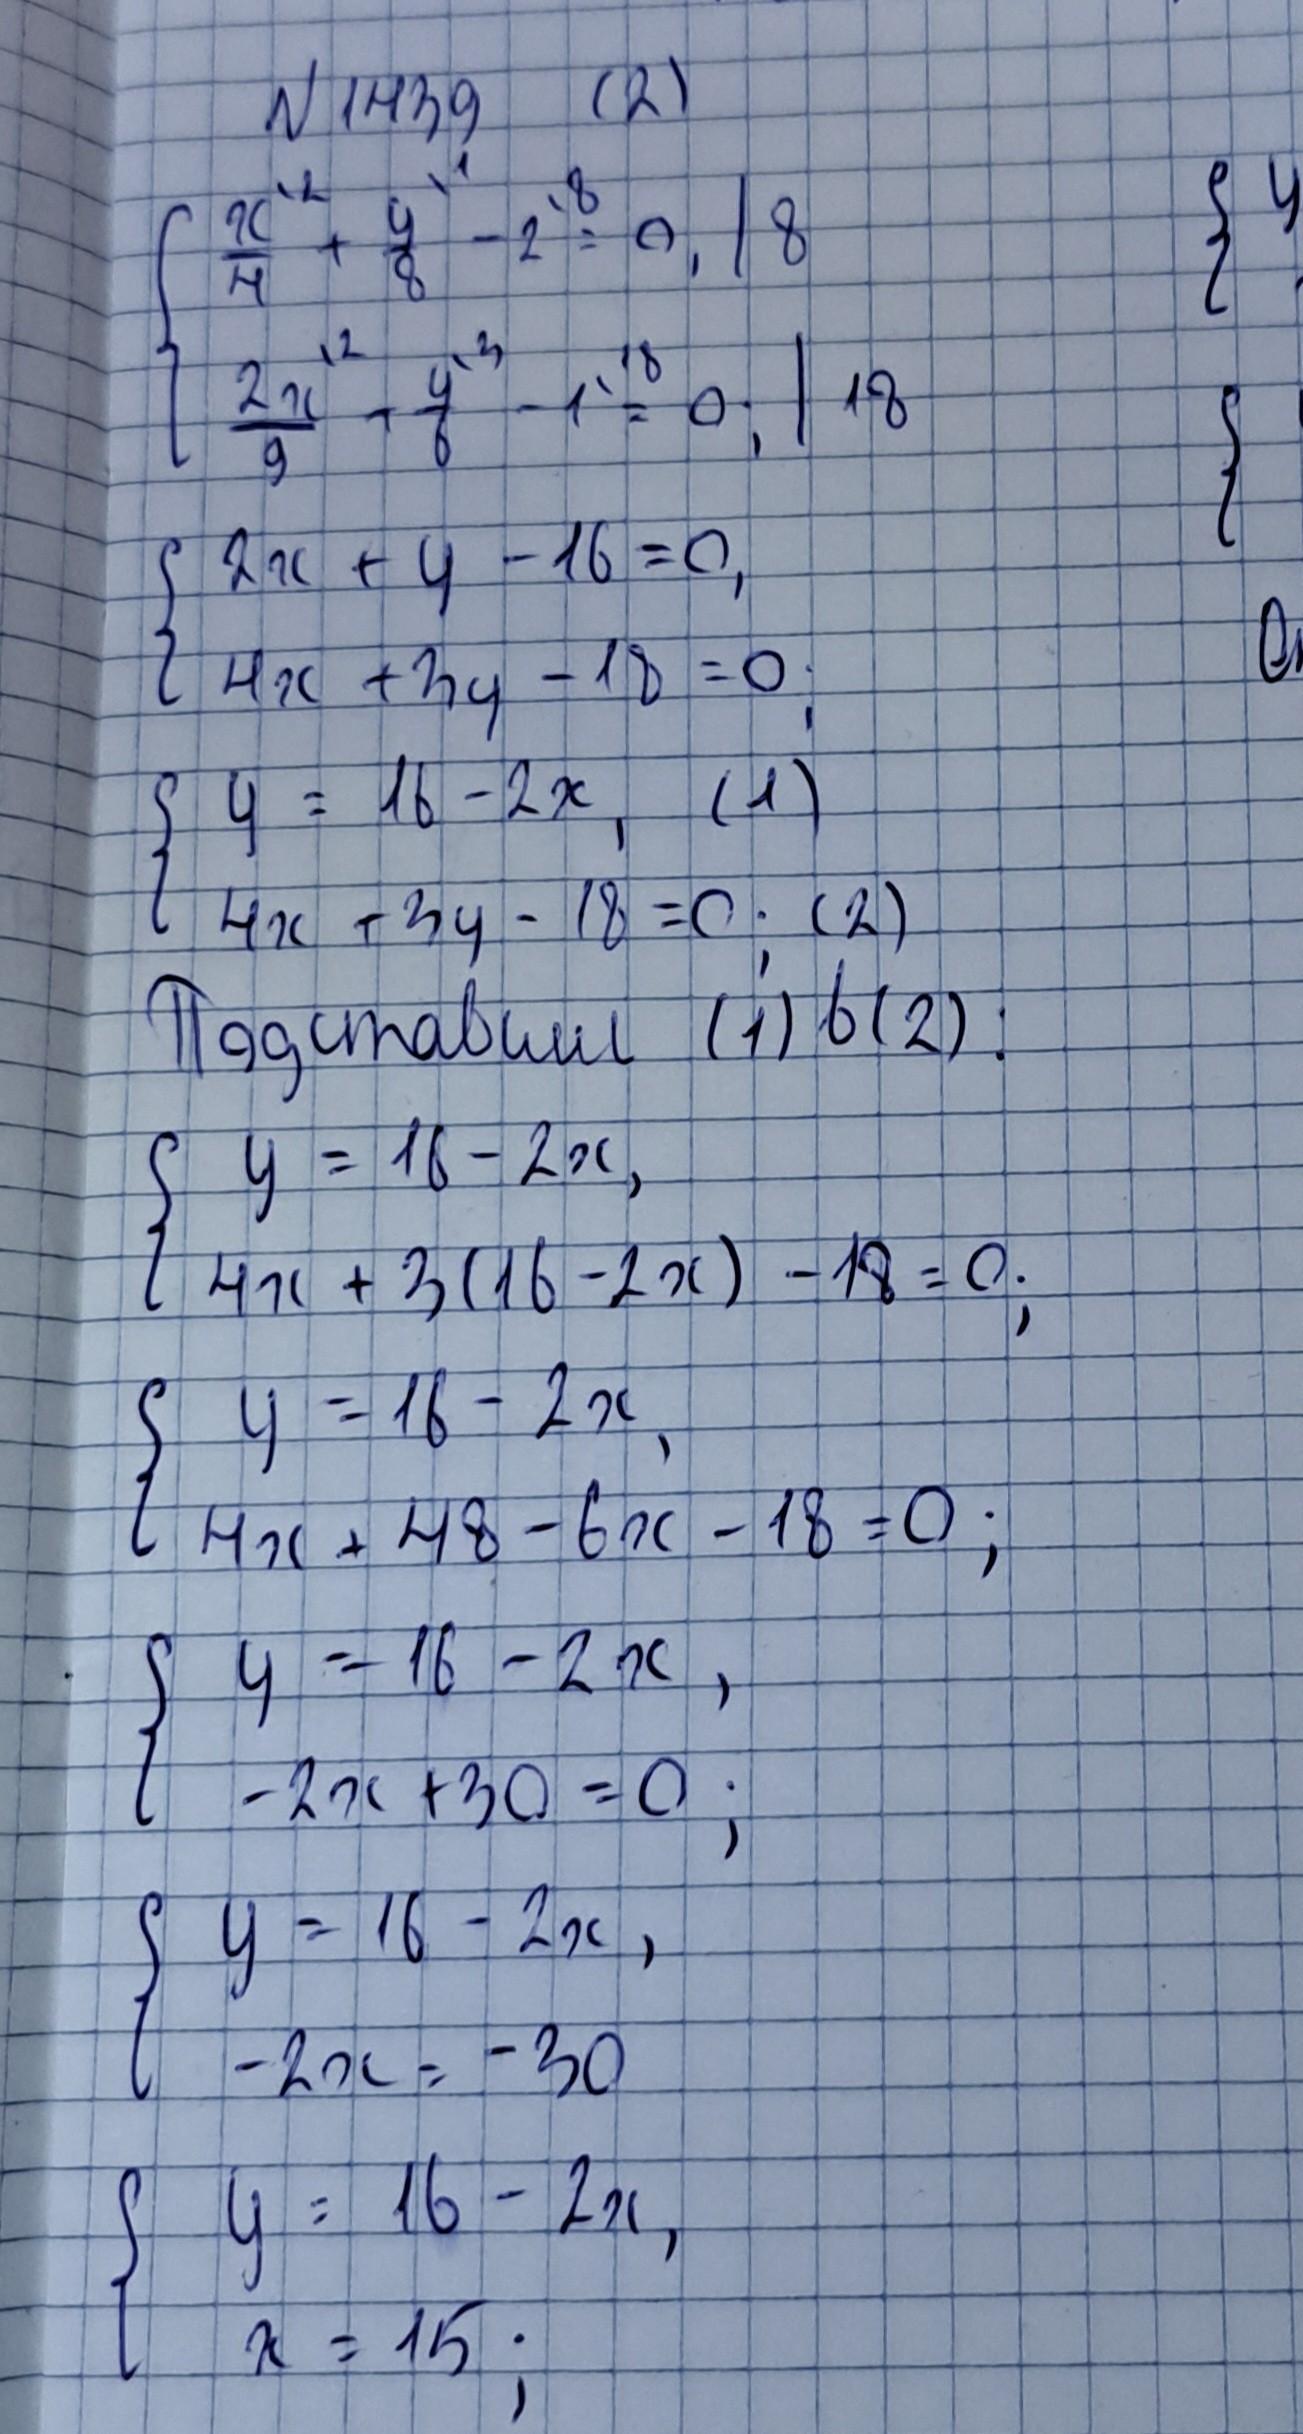 N 1439 (2)
{ x/4 \2 + y/8 \1 - 2 \8 = 0, | 8
{ 2x/9 \2 + y/6 \3 - 1 \18 = 0; | 18
{ 2x + y - 16 = 0,
{ 4x + 3y - 18 = 0;
{ y = 16 - 2x, (1)
{ 4x + 3y - 18 = 0; (2)
Подставим (1) в (2):
{ y = 16 - 2x,
{ 4x + 3(16 - 2x) - 18 = 0;
{ y = 16 - 2x,
{ 4x + 48 - 6x - 18 = 0;
{ y = 16 - 2x,
{ -2x + 30 = 0;
{ y = 16 - 2x,
{ -2x = -30
{ y = 16 - 2x,
{ x = 15;
{ y
{